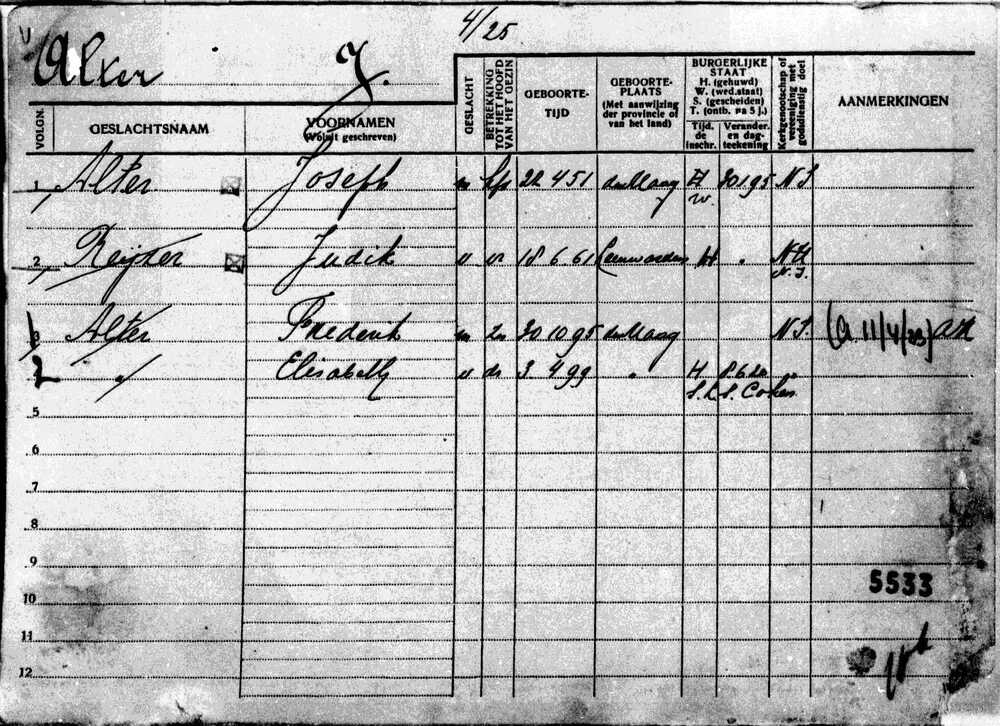 4/25
Alter J.
VOLGN.
GESLACHTSNAAM
VOORNAMEN
(Voluit geschreven)
GESLACHT
BETREKKING TOT HET HOOFD VAN HET GEZIN
GEBOORTE-
TIJD
GEBOORTE-
PLAATS
(Met aanwijzing
der provincie of
van het land)
BURGERLIJKE
STAAT
H. (gehuwd)
W. (wed.staat)
S. (gescheiden)
T. (ontb. na 5 j.)
Tijd. de inschr.
Verander. en dag-teekening
Kerkgenootschap of vereeniging met godsdienstig doel
AANMERKINGEN
1 Alter Joseph m hfd 22 4 51 H 30195 N.I.
W.
2 Judik v vr 18 6 61 Leeuwarden H " N.I.
3 Alter Frederik m zn 30 10 95 N.I. (a 11/4/23)
" Elisabeth v dr 3 4 99 " H "
S. Cohen
5
6
7
8
9
5533
10
11
12